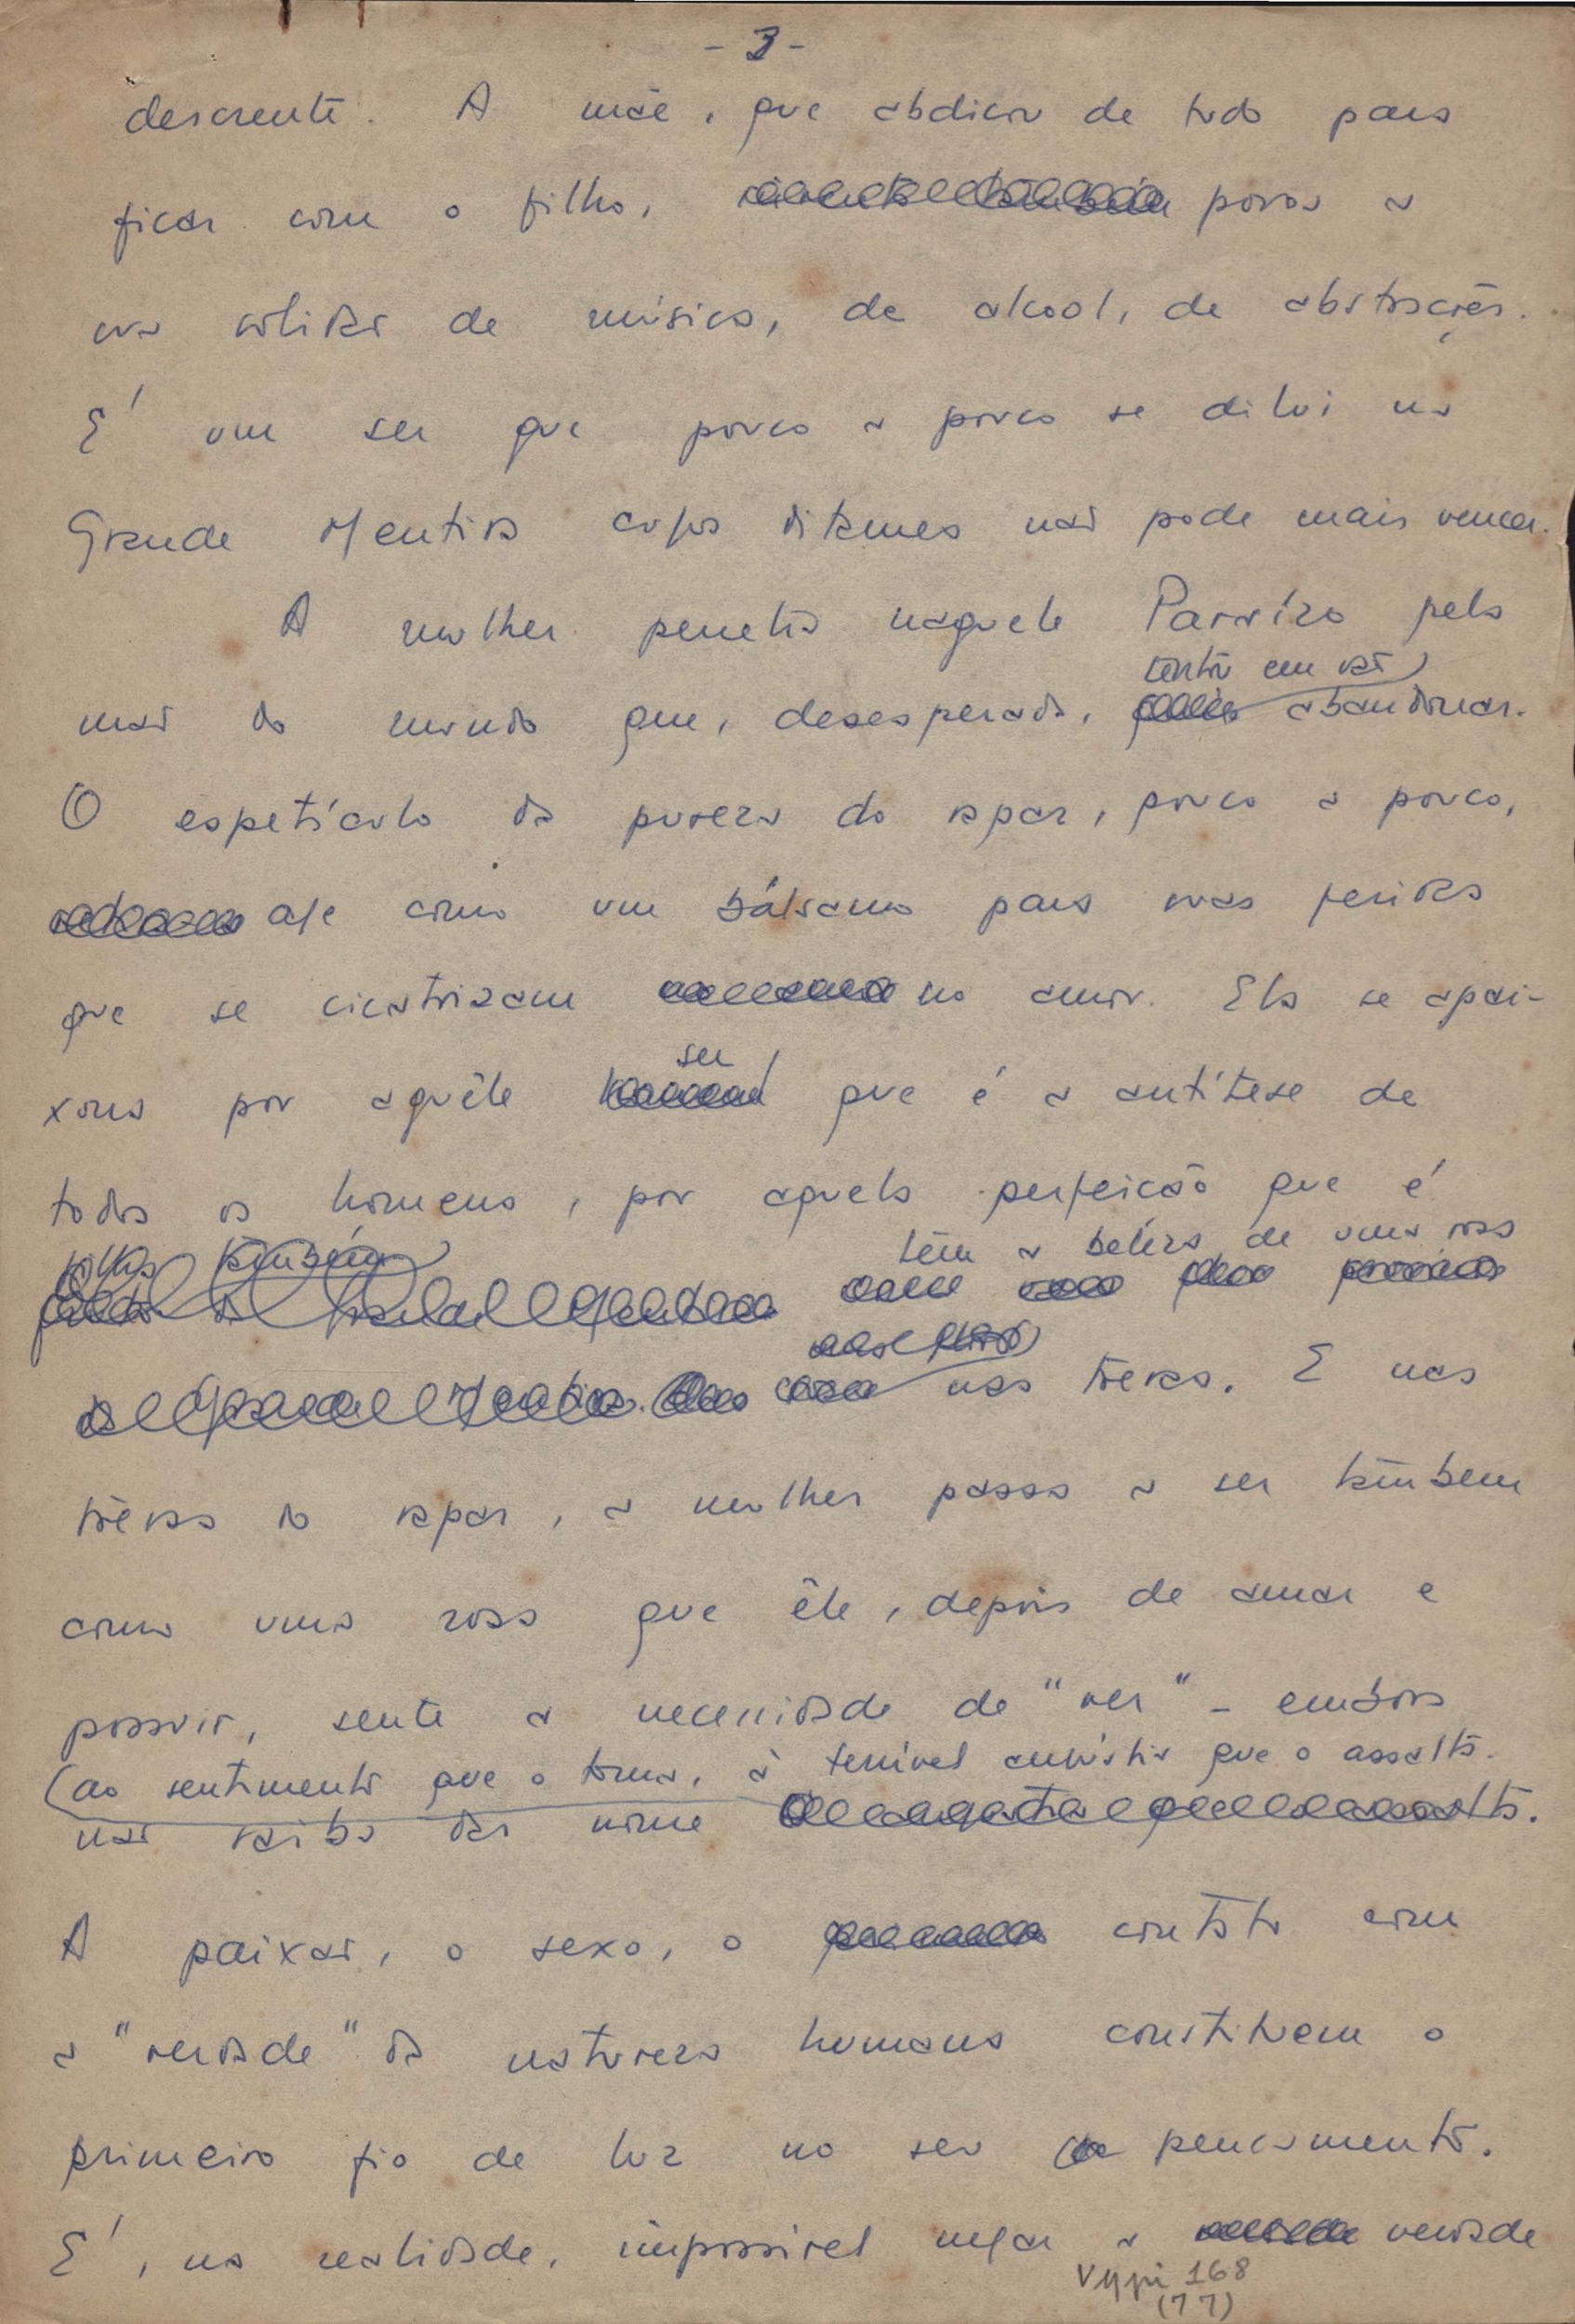 - 3 -
descrente. A mãe, que abdicou de tudo para
ficar com o filho, povoa a
sua solidão de música, de alcool, de abstrações.
E' um ser que pouco a pouco se dilui na
Grande Mentira cujos ditames não pode mais vencer.
A mulher penetra naquele Paraízo pela
tenta em vão
mão do mundo que, desesperada, abandonar.
O espetáculo da pureza do rapaz, pouco a pouco,
age como um bálsamo para suas feridas
que se cicatrizam no amor. Ela se apai-
ser
xona por aquêle que é a antítese de
todos os homens, por aquela perfeição que é
também têm a beleza de uma rosa
nas trevas. E nas
trévas do rapaz, a mulher passa a ser também
como uma rosa que êle, depois de amar e
possuir, sente a necessidade de "ver" - embora
(ao sentimento que o toma, à terrível angústia que o assalta.
não saiba dar nome
A paixão, o sexo, o contato com
a "verdade" da natureza humana constituem o
primeiro fio de luz no seu pensamento.
E', na realidade, impossível negar a verdade
Vypi 168
(77)